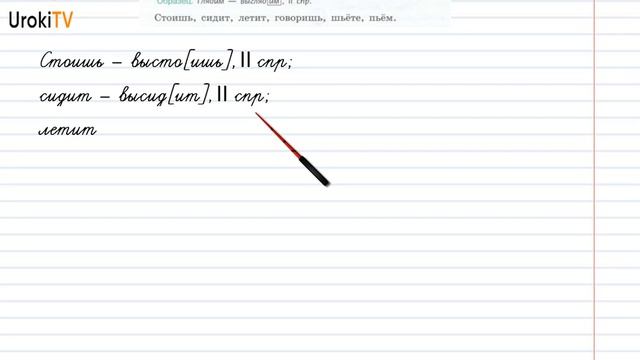 UrokiTV
Образец. Глядим — выгляд[им], II спр.
Стоишь, сидит, летит, говоришь, шьёте, пьём.
Стоишь – высто[ишь], II спр;
сидит – высид[ит], II спр;
летит